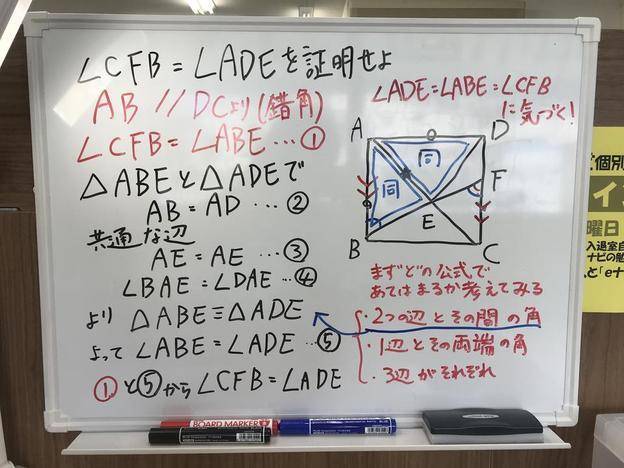 ∠CFB = ∠ADEを証明せよ
AB // DCより(錯角)
∠CFB = ∠ABE … ①
△ABEと△ADEで
AB = AD … ②
共通な辺
AE = AE … ③
∠BAE = ∠DAE … ④
より △ABE≡△ADE
よって ∠ABE = ∠ADE … ⑤
①と⑤から∠CFB = ∠ADE
∠ADE = ∠ABE = ∠CFB
に気づく!
A
D
同
同
F
E
B
C
まずどの公式で
あてはまるか考えてみる
・2つの辺とその間の角
・1辺とその両端の角
・3辺がそれぞれ
BOARD MARKER
個別
イ
曜日
入退室
ナビの勉
と「eナ